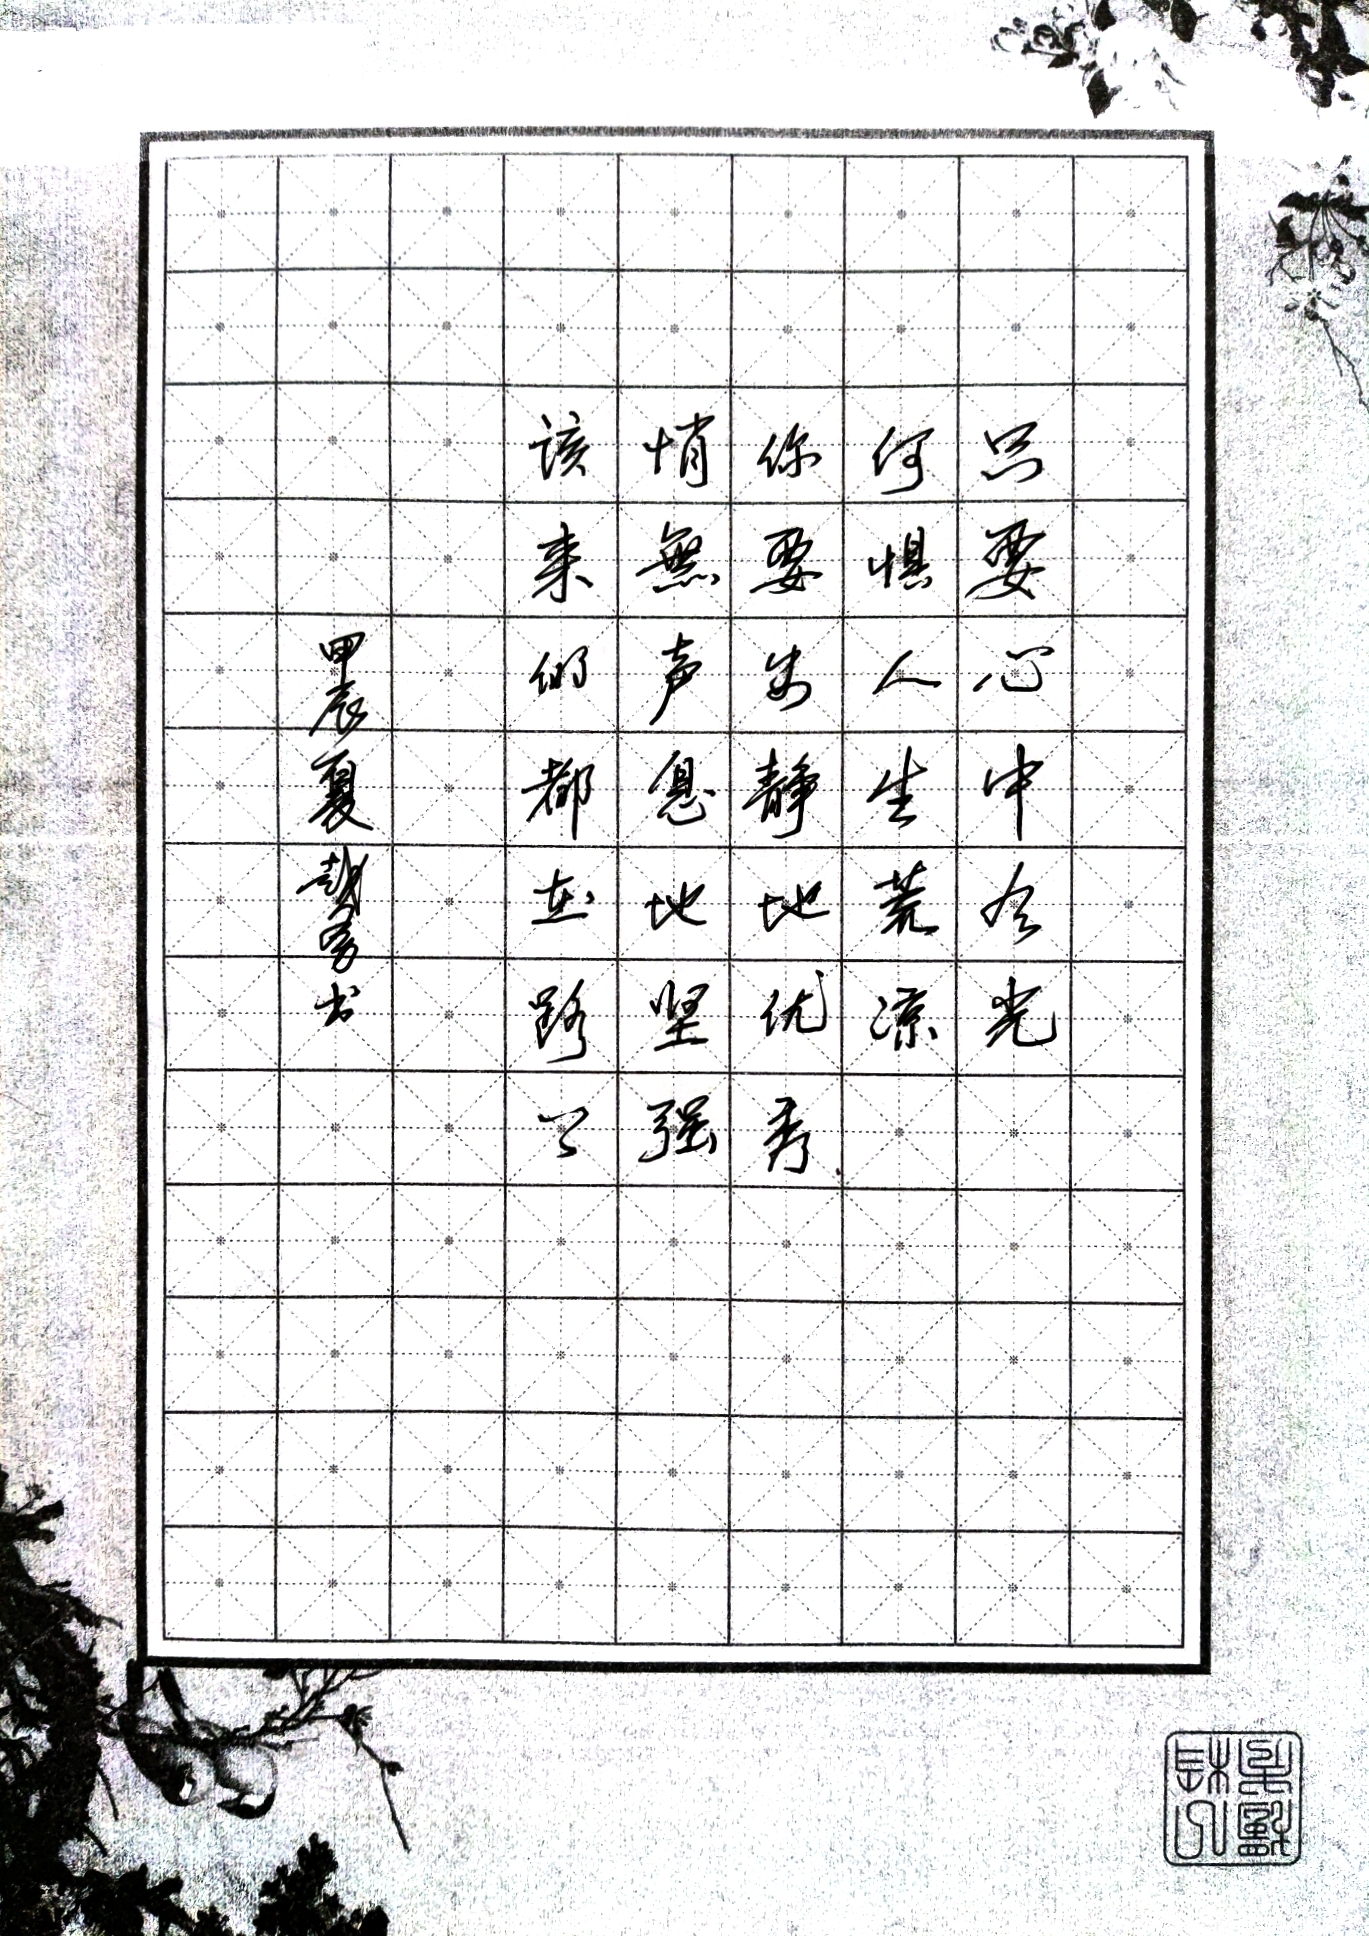 只要心中有光
何惧人生荒凉
你要安静地优秀
悄無声息地坚强
该来的都在路上
甲辰夏书